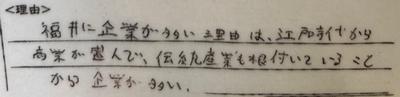 <理由>
福井に企業が多い理由は、江戸時代から
商業が盛んで、伝統産業も根付いていること
から企業が多い。